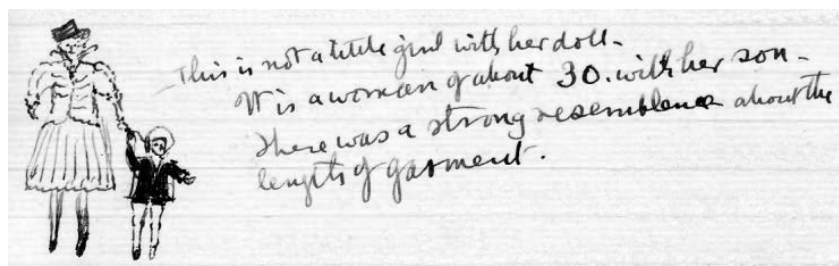 This is not a little girl with her doll-
It is a woman of about 30. with her son-
There was a strong resemblence about the
lengths of garment.